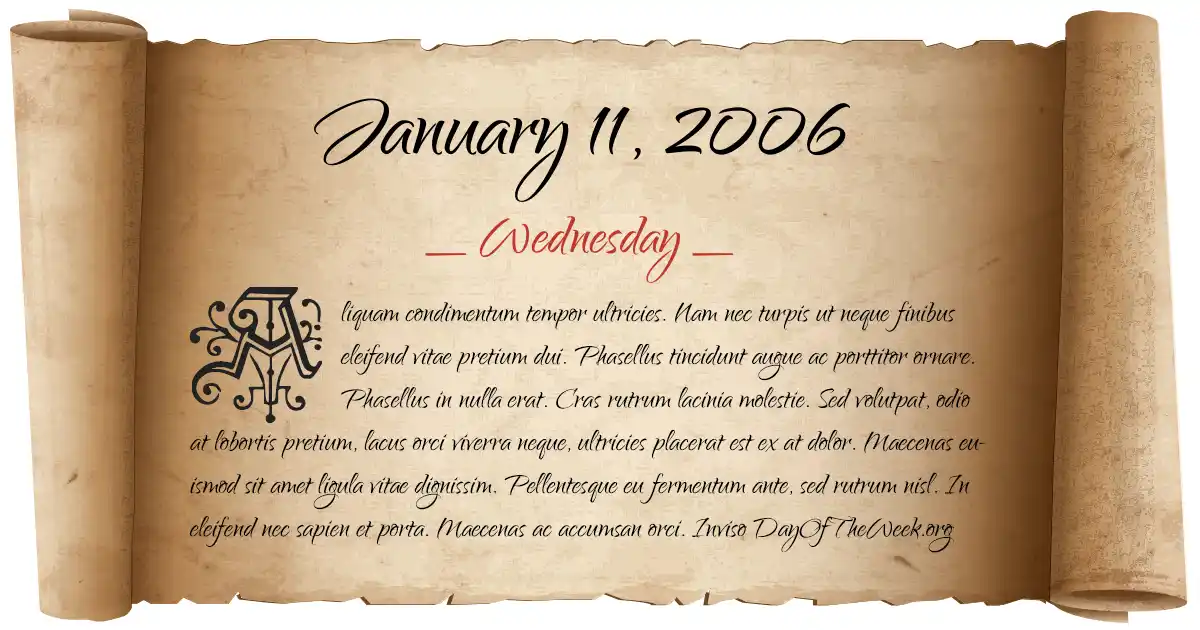 January 11, 2006
— Wednesday —
Aliquam condimentum tempor ultricies. Nam nec turpis ut neque finibus
eleifend vitae pretium dui. Phasellus tincidunt augue ac porttitor ornare.
Phasellus in nulla erat. Cras rutrum lacinia molestie. Sed volutpat, odio
at lobortis pretium, lacus orci viverra neque, ultricies placerat est ex at dolor. Maecenas eu-
ismod sit amet ligula vitae dignissim. Pellentesque eu fermentum ante, sed rutrum nisl. In
eleifend nec sapien et porta. Maecenas ac accumsan orci. Inviso DayOfTheWeek.org